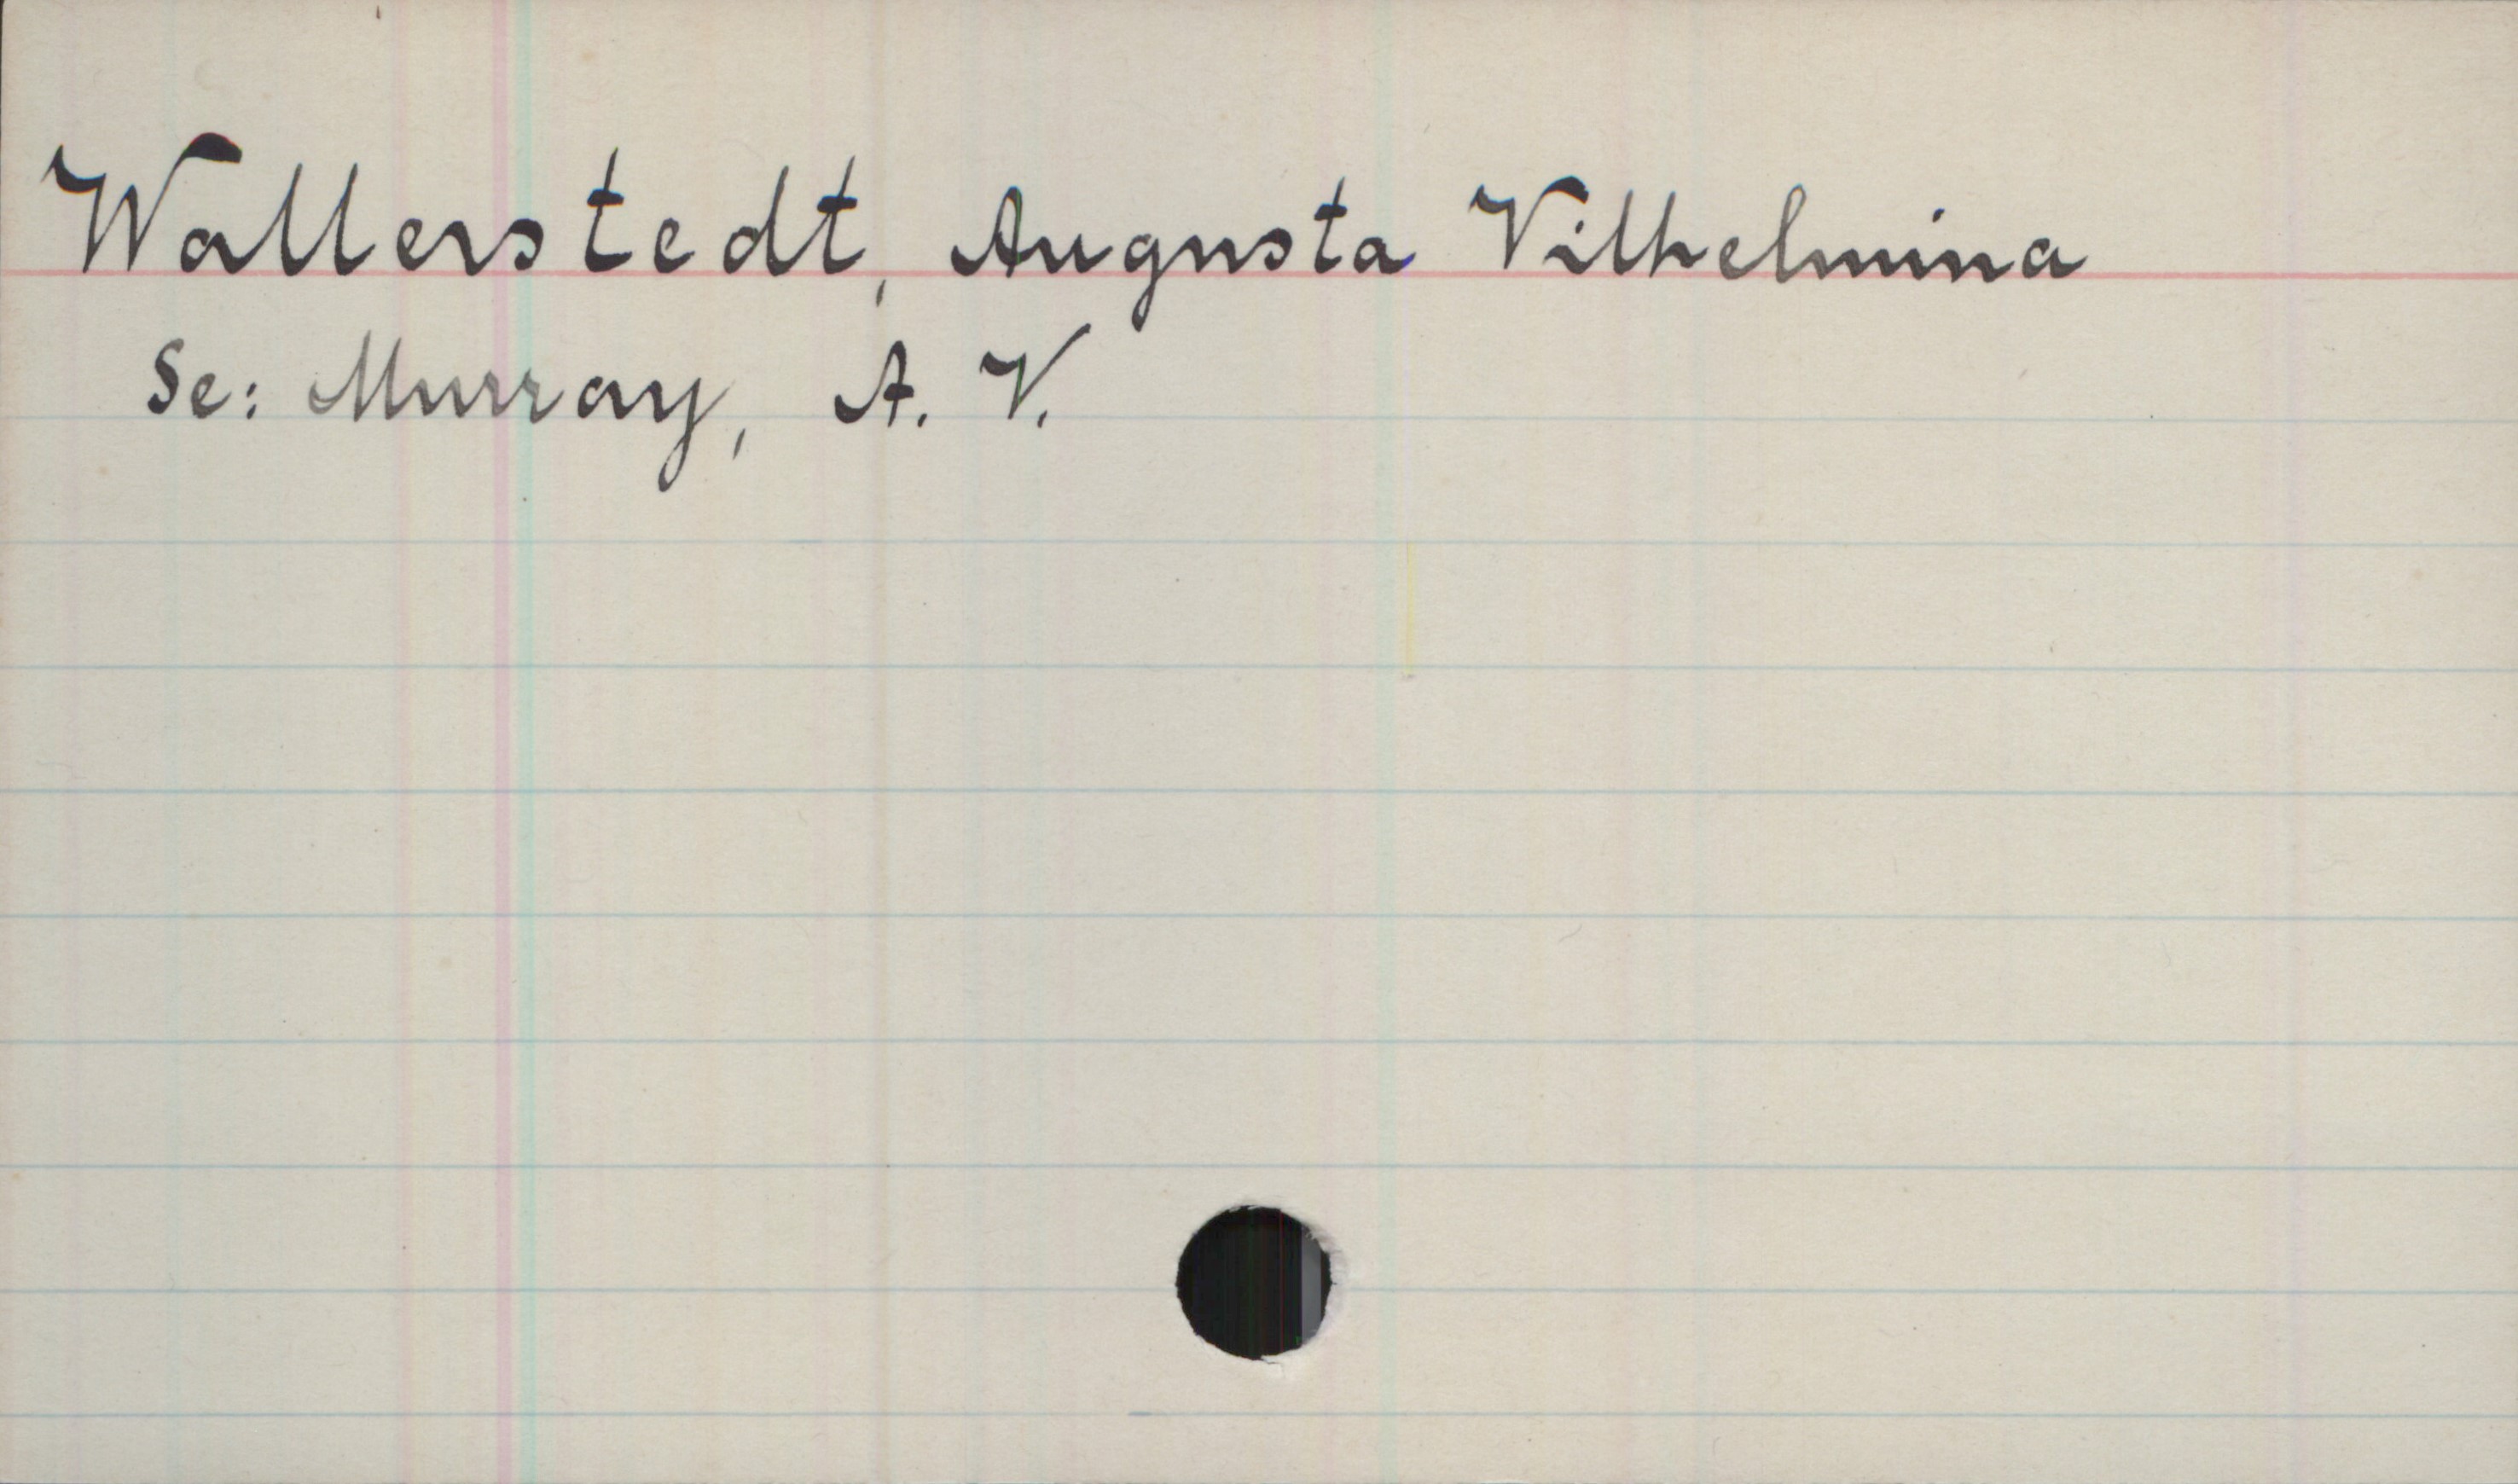 Wallerstedt, Augusta Vilhelmina
Se: Murray, A. V.